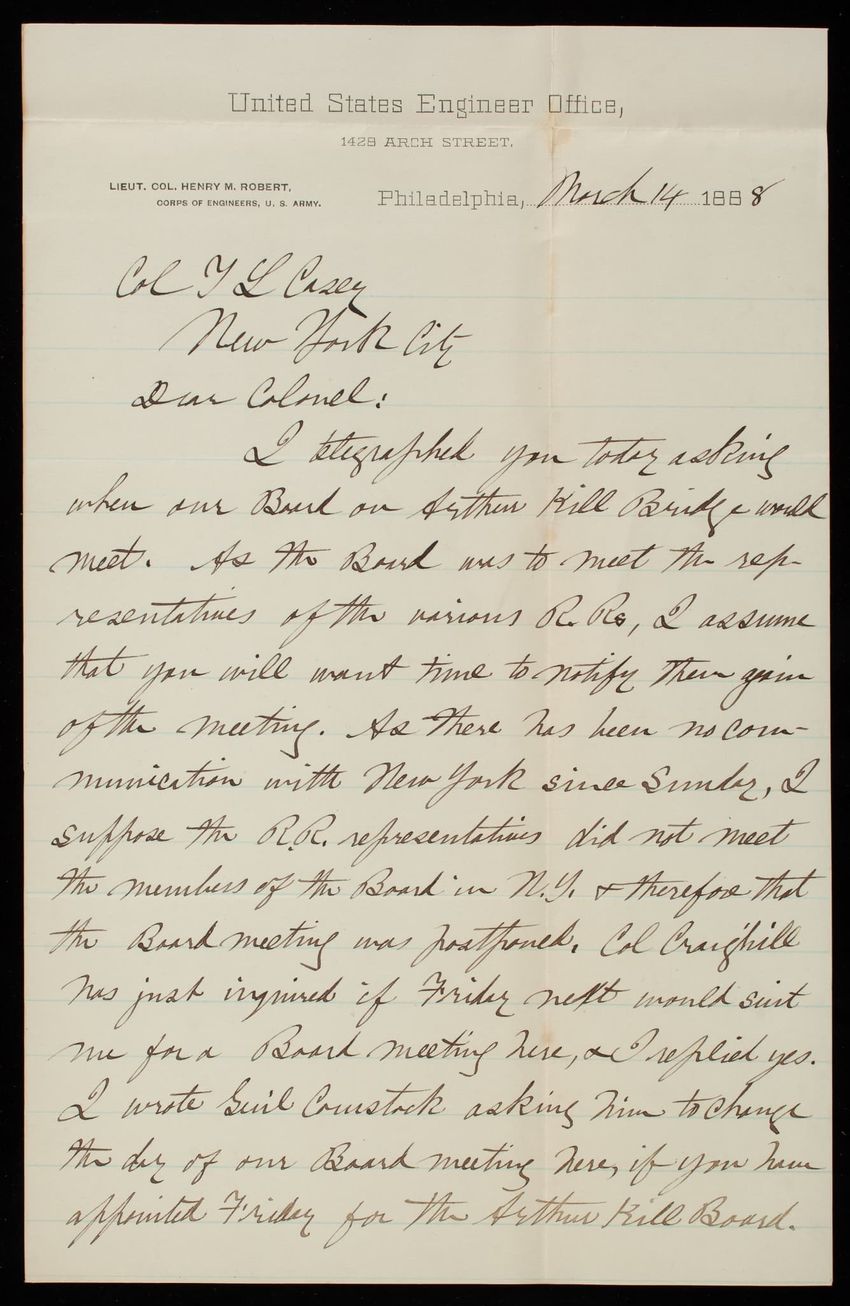 United States Engineer Office,
1428 ARCH STREET.
LIEUT. COL. HENRY M. ROBERT,
CORPS OF ENGINEERS, U. S. ARMY.
Philadelphia, March 14 1888
Col T L Casey
New York City
Dear Colonel:
I telegraphed you today asking
when our Board on Arthur Kill Bridge would
meet. As the Board was to meet the rep-
resentatives of the various R. Rs, I assume
that you will want time to notify them again
of the meeting. As there has been no com-
munication with New York since Sunday, I
suppose the R.R. representatives did not meet
the members of the Board in N.Y. & therefore that
the Board meeting was postponed. Col Craighill
has just inquired if Friday next would suit
me for a Board meeting here, & I replied yes.
I wrote Genl Comstock asking him to change
the day of our Board meeting here, if you have
appointed Friday for the Arthur Kill Board.